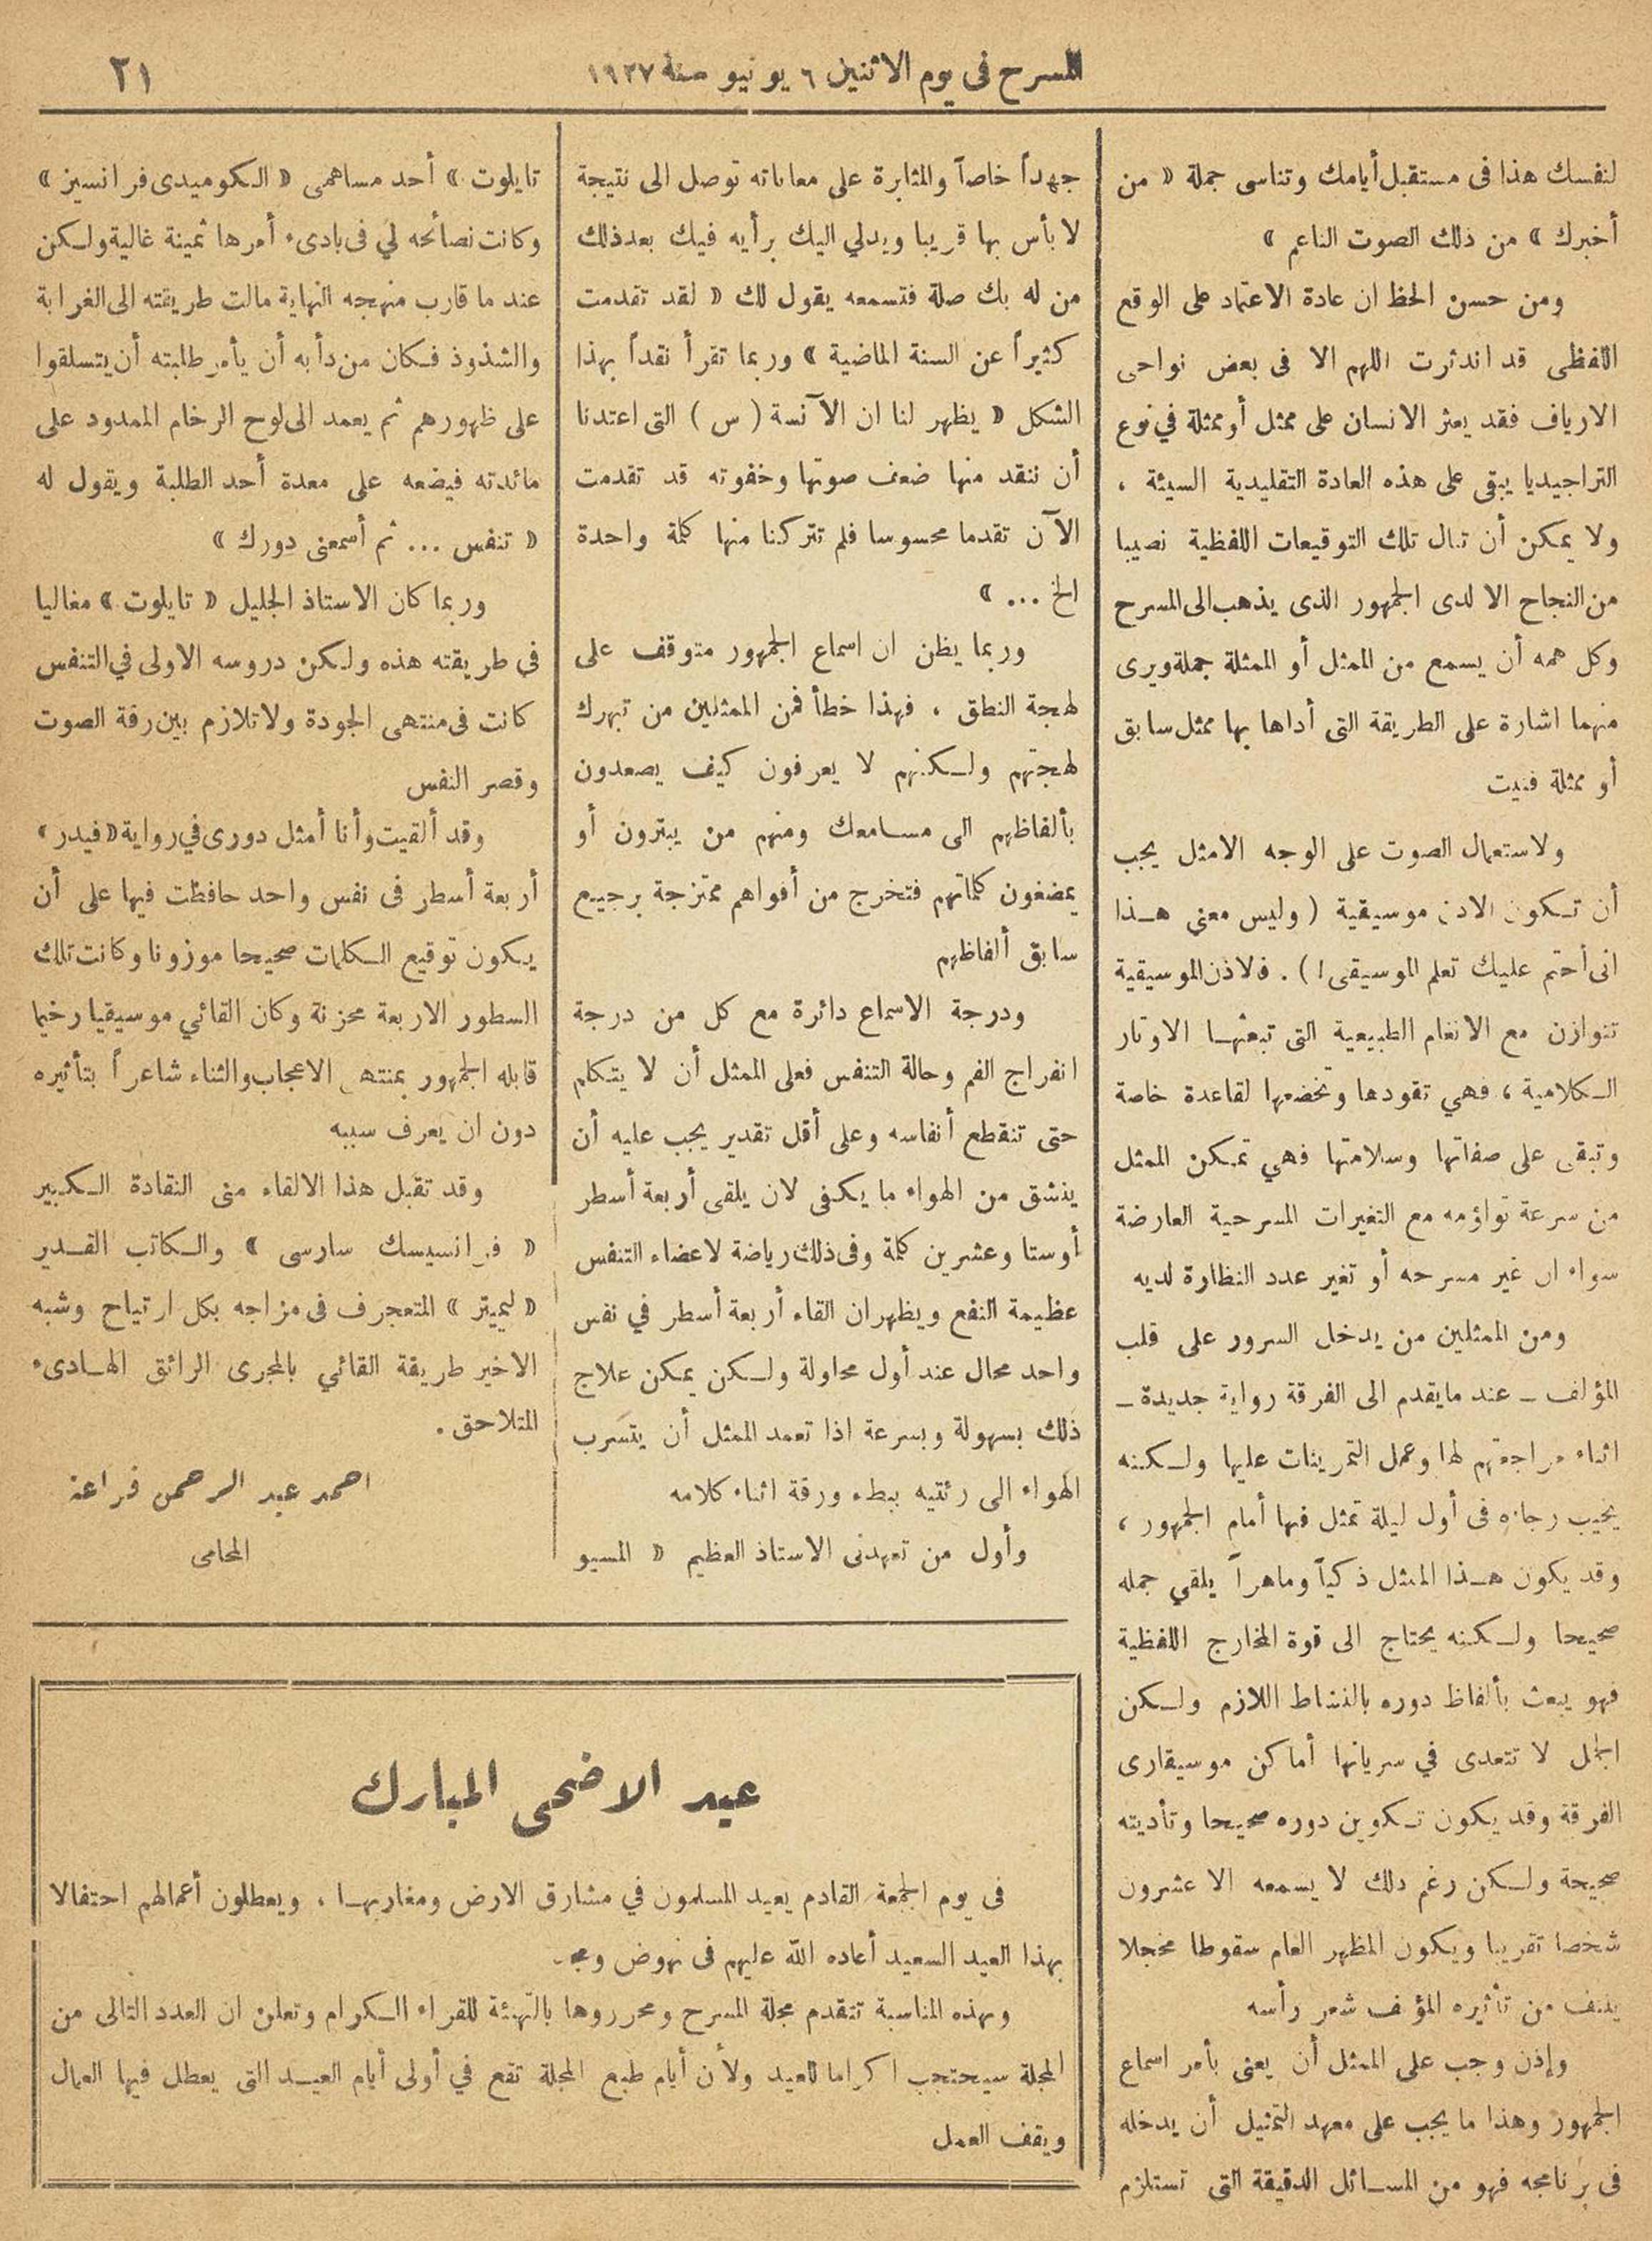 المسرح فى يوم الاثنين ٦ يونيو سنة ١٩٢٧
٢١
لنفسك هذا فى مستقبل أيامك وتناسى جملة « من
أخبرك » من ذلك الصوت الناعم »
ومن حسن الحظ ان عادة الاعتماد على الوقع
اللفظى قد اندثرت اللهم الا فى بعض نواحى
الارياف فقد يعثر الانسان على ممثل أو ممثلة في نوع
التراجيديا يبقى على هذه العادة التقليدية السيئة ،
ولا يمكن أن تنال تلك التوقيعات اللفظية نصيبا
من النجاح الا لدى الجمهور الذى يذهب الى المسرح
وكل همه أن يسمع من الممثل أو الممثلة جملة ويرى
منهما اشارة على الطريقة التى أداها بها ممثل سابق
أو ممثلة فنيت
ولاستعمال الصوت على الوجه الامثل يجب
أن تـكون الاذن موسيقية ( وليس معني هـذا
انى أحتم عليك تعلم الموسيقى ! ) . فالاذن الموسيقية
تتوازن مع الانغام الطبيعية التى تبعثهـا الاوتار
الـكلامية ، فهي تقودها وتخضعها لقاعدة خاصة
وتبقى على صفاتها وسلامتها فهي تمـكن الممثل
من سرعة تواؤمه مع التغيرات المسرحية العارضة
سواء ان غير مسرحه أو تغير عدد النظارة لديه
ومن الممثلين من يدخل السرور على قلب
المؤلف ــ عند ما يقدم الى الفرقة رواية جديدة ــ
اثناء مراجعتهم لها وعمل التمرينات عليها ولـكنه
يخيب رجاءه فى أول ليلة تمثل فيها أمام الجمهور ،
وقد يكون هـذا الممثل ذكياً وماهراً يلقي جمله
صحيحا ولـكنه يحتاج الى قوة المخارج اللفظية
فهو يبعث بألفاظ دوره بالنشاط اللازم ولـكن
الجمل لا تتعدى في سريانها أماكن موسيقارى
الفرقة وقد يكون تـكوين دوره صحيحا وتأديته
صحيحة ولـكن رغم ذلك لا يسمعه الا عشرون
شخصا تقريبا ويكون المظهر العام سقوطا مخجلا
ينتف من تأثيره المؤلف شعر رأسه
وإذن وجب على الممثل أن يعنى بأمر اسماع
الجمهور وهذا ما يجب على معهد التمثيل أن يدخله
فى برنامجه فهو من المسـائل الدقيقة التى تستلزم
جهداً خاصاً والمثابرة على معاناته توصل الى نتيجة
لا بأس بها قريبا ويدلي اليك برأيه فيك بعد ذلك
من له بك صلة فتسمعه يقول لك « لقد تقدمت
كثيراً عن السنة الماضية » وربما تقرأ نقداً بهذا
الشكل « يظهر لنا ان الآنسة ( س ) التى اعتدنا
أن ننقد منها ضعف صوتها وخفوته قد تقدمت
الآن تقدما محسوسا فلم تتركنا منها كلمة واحدة
الخ ... »
وربما يظن ان اسماع الجمهور متوقف على
لهجة النطق ، فهذا خطأ فمن الممثلين من تبهرك
لهجتهم ولـكنهم لا يعرفون كيف يصعدون
بألفاظهم الى مسامعك ومنهم من يبترون أو
يمضغون كلماتهم فتخرج من أفواهم ممتزجة برجيع
سابق ألفاظهم
ودرجة الاسماع دائرة مع كل من درجة
انفراج الفم وحالة التنفس فعلى الممثل أن لا يتكلم
حتى تنقطع أنفاسه وعلى أقل تقدير يجب عليه أن
ينشق من الهواء ما يكفى لان يلقى أربعة أسطر
أوستا وعشرين كلمة وفى ذلك رياضة لاعضاء التنفس
عظيمة النفع ويظهر ان القاء أربعة أسطر في نفس
واحد محال عند أول محاولة ولـكن يمكن علاج
ذلك بسهولة وبسرعة اذا تعمد الممثل أن يتسرب
الهواء الى رئتيه ببطء ورقة اثناء كلامه
وأول من تعهدنى الاستاذ العظيم « المسيو
تايلوت » أحد مساهمى « الـكوميدى فرانسيز »
وكانت نصائحه لي فى بادىء أمرها ثمينة غالية ولـكن
عند ما قارب منهجه النهاية مالت طريقته الى الغرابة
والشذوذ فـكان من دأبه أن يأمر طلبته أن يتسلقوا
على ظهورهم ثم يعمد الى لوح الرخام الممدود على
مائدته فيضعه على معدة أحد الطلبة ويقول له
« تنفس ... ثم أسمعنى دورك »
وربما كان الاستاذ الجليل « تايلوت » مغاليا
فى طريقته هذه ولـكن دروسه الاولى في التنفس
كانت فى منتهى الجودة ولا تلازم بين رقة الصوت
وقصر النفس
وقد ألقيت وأنا أمثل دورى في رواية « فيدر »
أربعة أسطر فى نفس واحد حافظت فيها على أن
يـكون توقيع الـكلمات صحيحا موزونا وكانت تلك
السطور الاربعة محزنة وكان القائي موسيقيا رخيما
قابله الجمهور بمنتهى الاعجاب والثناء شاعراً بتأثيره
دون ان يعرف سببه
وقد تقبل هذا الالقاء منى النقادة الـكبير
« فرانسيسك سارسى » والـكاتب القـدير
« ليميتر » المتعجرف فى مزاجه بكل ارتياح وشبه
الاخير طريقة القائي بالمجرى الرائق الهـادىء
المتلاحق .
احمد عبد الرحمن قراعة
المحامى
عيد الاضحى المبارك
فى يوم الجمعة القادم يعيد المسلمون في مشارق الارض ومغاربهـا ، ويعطلون أعمالهم احتفالا
بهذا العيد السعيد أعاده الله عليهم فى نهوض
وبهذه المناسبة تتقدم مجلة المسرح ومحرروها بالتهنئة للقراء الـكرام وتعلن ان العدد التالى من
المجلة سيحتجب اكراما للعيد ولأن أيام طبع المجلة تقع في أولى أيام العيـد التى يعطل فيها العمال
ويقف العمل